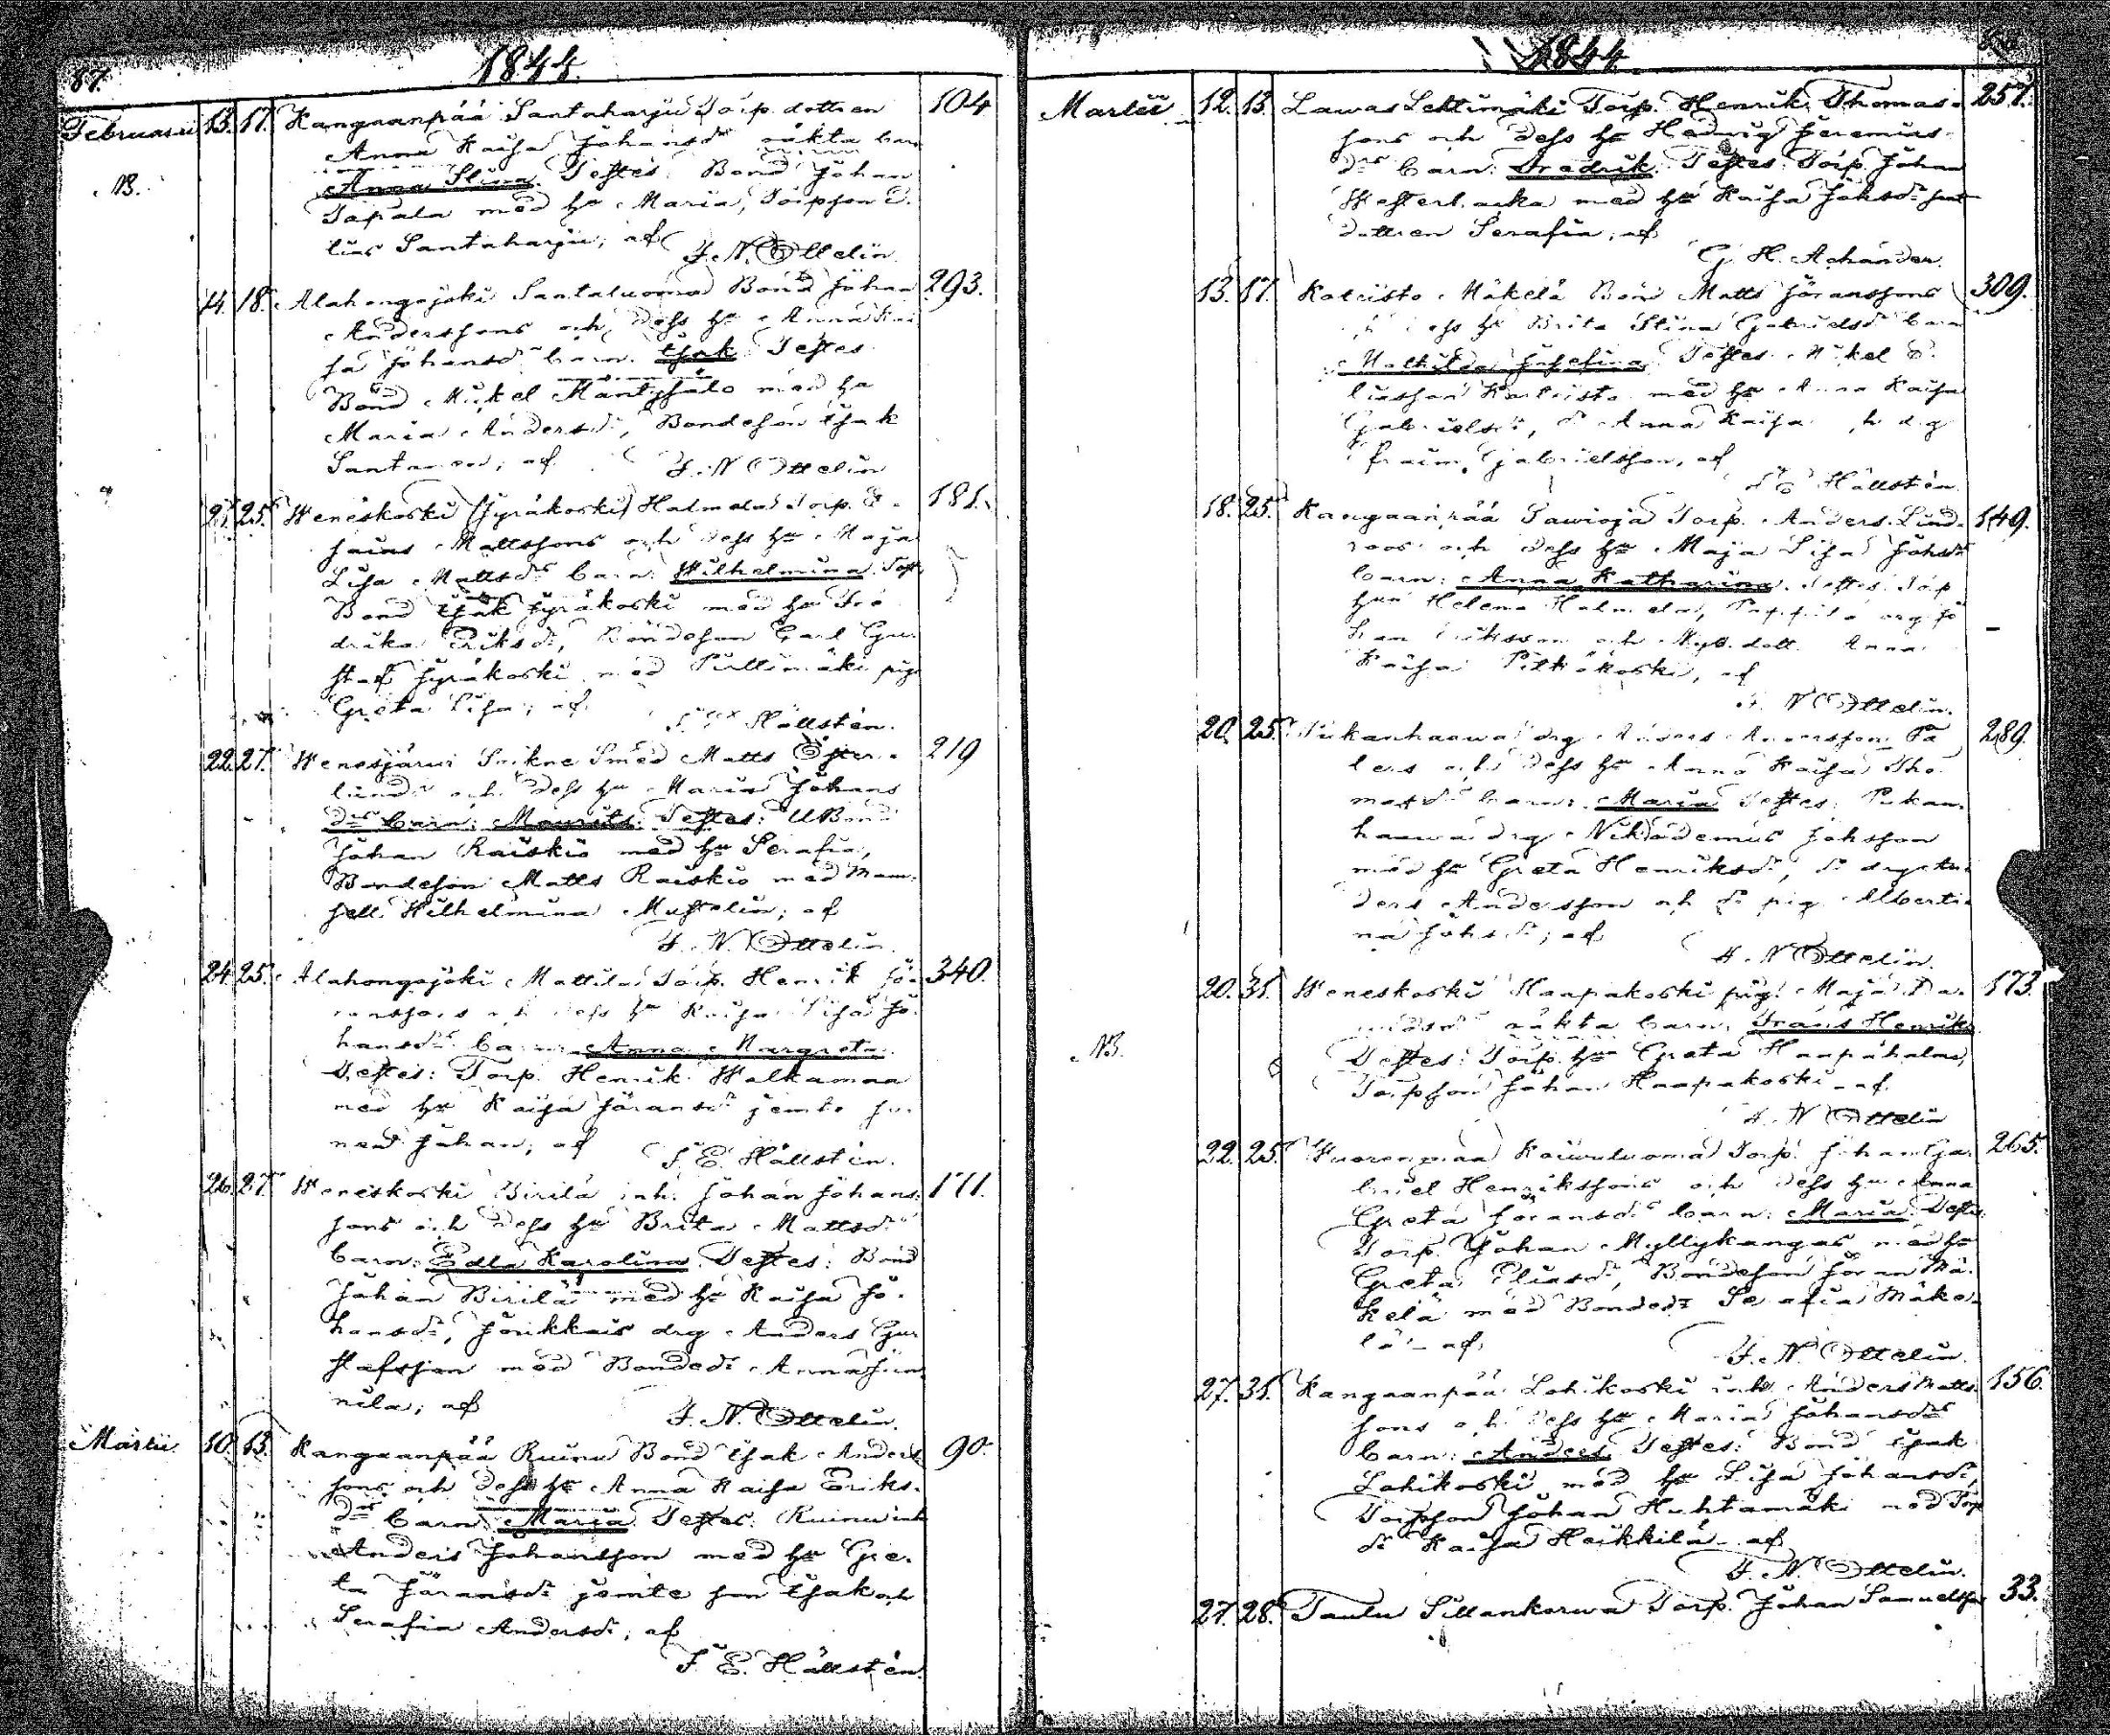 87.
1844.
Februarii 13. 17. Kangaanpää Santaharju Torp. dottren 104
Anna Kaisa Johansdr oäkta barn
NB.
Anna Stina. Testes: Bond Johan
Tapala med hu Maria, Torpson E-
lias Santaharju; af
F. N. Ottelin.
14. 18. Alahongojoki Santaluoma Bond Johan 293.
Anderssons och dess hu Anna Kai
sa Johansdr barn. Isak Testes
Bond Mickel Mäntysalo med hu
Maria Andersdr, Bondeson Isak
af F. N Ottelin
21. 25. Weneskoski (Jyräkoski) Halmela Torp. E- 181.
saias Mattssons och dess hu Maja
Lisa Mattsdr barn: Wilhelmina. Test:
Bond Isak Jyräkoski med hu Fre
drika Eriksdr, Bondeson Carl Gu-
staf Jyräkoski med Pulttimäki pig
Greta Lisa; af
Hällstén.
22. 27. Wenesjärwi Sokne Smed Matts Öster- 219
lunds och dess hu Maria Johans
dr barn: Maurits. Testes: UBond
Johan Raiskio med hu Serafia,
Bondeson Matts Raiskio med Mam-
sell Wilhelmina Mustelin; af
F. N. Ottelin.
24. 25. Alahongojoki Mattila Torp. Henrik Jö- 340.
ranssons och dess hu Kaisa Lisa Jo-
hansdr barn: Anna Margreta.
Testes: Torp. Henrik Walkamaa
med hu Kaisa Göransdr jemte
Johan; af
F. E. Hällstén.
26. 27. Weneskoski Birilä inh. Johan Johans- 171.
sons och dess hu Brita Mattsdr
barn: Edla Karolina Testes: Bond
Johan Birilä med hu Kaisa Jo-
hansdr, Jonikkais drg Anders Gu-
stafsson med Bondedr Anna Jun
nila; af
F. N. Ottelin.
Martii 10. 13. Kangaanpää Ruinu Bond Isak Anders 90.
sons och dess hu Anna Kaisa Eriks-
dr barn: Maria. Testes: Ruinu inh
Anders Johansson med hu Gre-
ta Göransdr jemte son Isak och
Serafia Andersdr, af
F. E. Hällstén.
1844
Martii 12. 13. Lawas Lehtimäki Torp. Henrik Thomas- 257.
sons och dess hu Hedwig Jeremias-
dr barn: Fredrik. Testes: Torp. Johan
Westerbacka med hu Kaisa Johsdr
dottren Serafia; af
G. H. Achander.
13. 17. Karwisto Mäkelä Bond Matts Göranssons 309.
och dess hu Brita Stina Gabrielsdr barn
Mathilda Josefina. Testes: Mickel E-
liasson med hu Anna Kaisa
Gabrielsdr, Anna Kaisa
Gabrielsson, af
Hällstén.
18. 25. Kangaanpää Sawioja Torp. Anders Lind- 149.
roos och dess hu Maja Lisa Johsdr
barn: Anna Katharina. Testes: Torp
hun Helena Halmela, drg Jo
han Eriksson och dott. Anna
Kaisa Pitkäkoski, af
F. N Ottelin.
20. 25. Pukanhaawa drg Anders Andersson Pa 289.
och dess hu Anna Kaisa Tho-
masdr barn: Maria Testes: Pukan-
haawa drg Nikodemus Johsson
med hu Greta Henriksdr, dr drg An-
ders Andersson och dr pig Alberti-
na Johsdr; af
F. N Ottelin.
20. 31. Weneskoski Haapakoski pig. Maja Da- 173.
NB.
widsdr oäkta barn: Frans Henrik
Testes: Torp. hun Greta Haapaholma,
Torpson Johan Haapakoski - af
F. N Ottelin
22. 25. Wuorenmaa Koiwuluoma Torp. Johan Ga- 265.
briel Henrikssons och dess hu Anna
Greta Göransdr barn: Maria. Testes
Torp. Johan Myllykangas med hu
Greta Eliasdr, Bondeson Göran Mä-
kelä med Bondedr Serafia Mäke-
lä - af
F. N. Ottelin.
27. 31. Kangaanpää Lohikoski inh. Anders Matts- 156.
sons och dess hu Maria Johansdr
barn: Anders. Testes: Bond Isak
Lohikoski med hu Lisa Johansdr,
Torpson Johan Huhtamäki med Torp
dr Kaisa Heikkilä - af
F. N. Ottelin.
27. 28. Taulu Sillankorwa Torp. Johan Samuelsson 33.